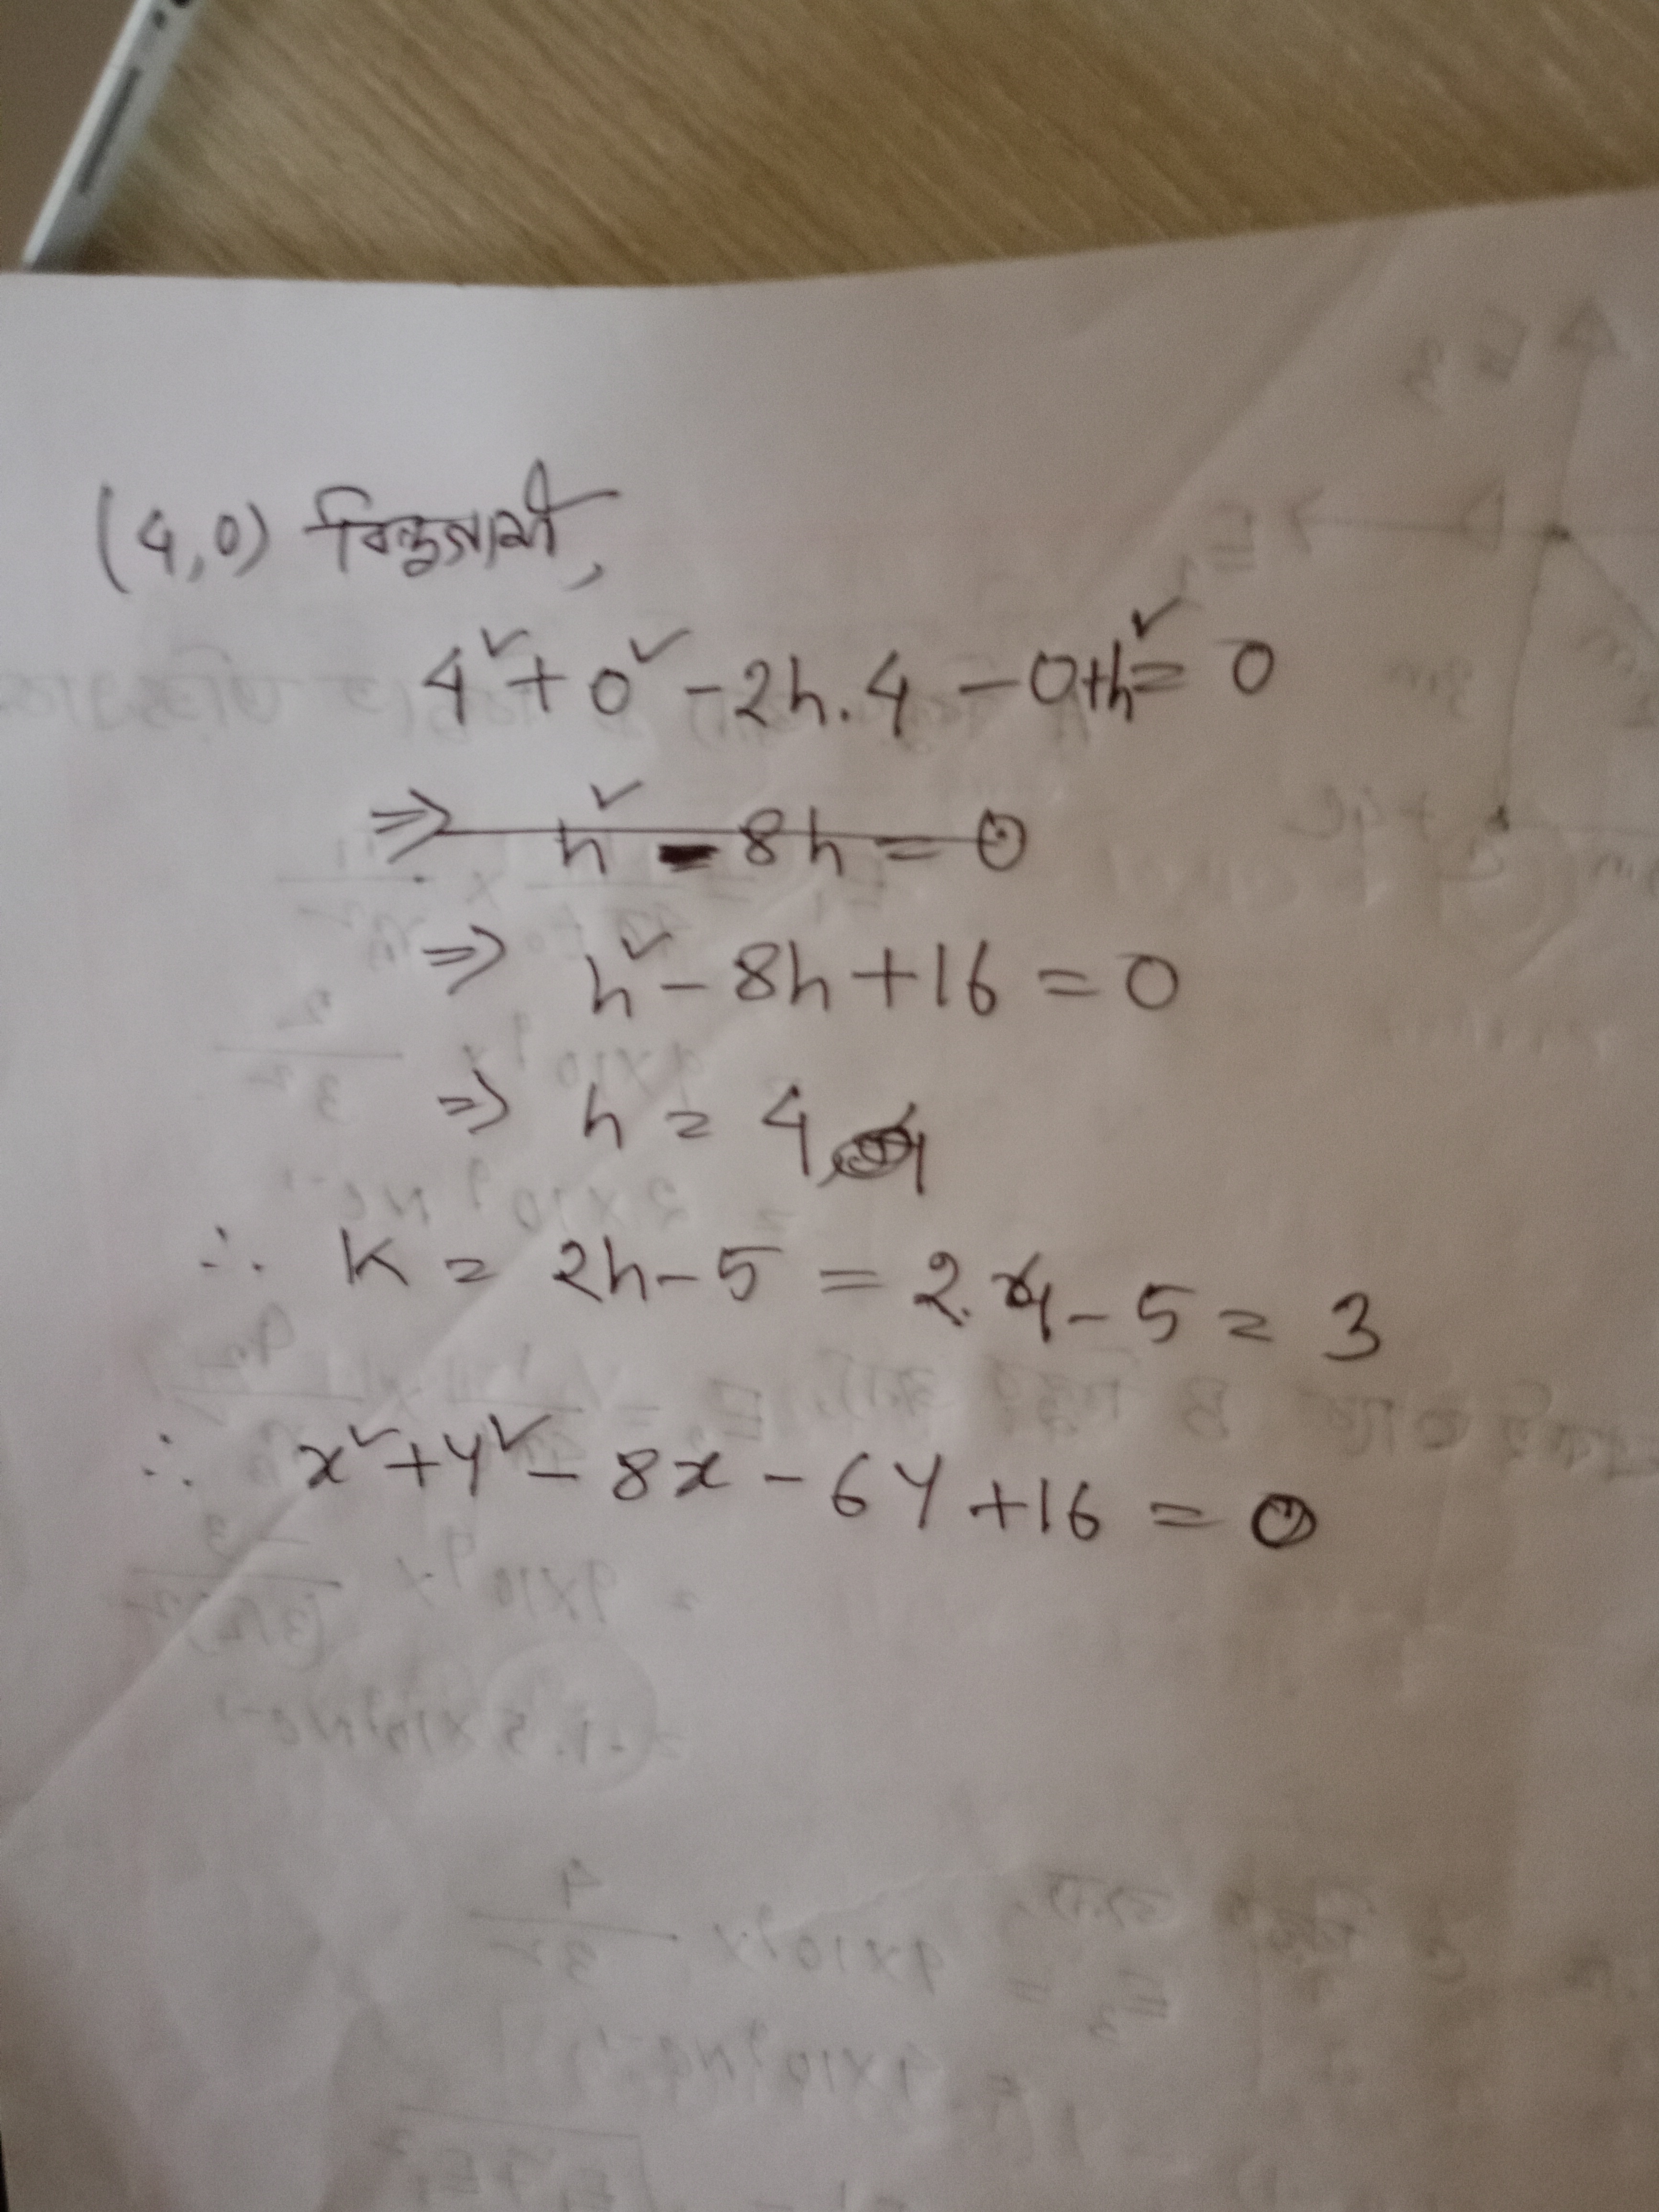 (4,0) বিন্দুগামী,
4² + 0² - 2h.4 - 0+h² = 0
⇒ h² - 8h = 0
⇒ h² - 8h + 16 = 0
⇒ h = 4
∴ k = 2h - 5 = 2.4 - 5 = 3
∴ x² + y² - 8x - 6y + 16 = 0